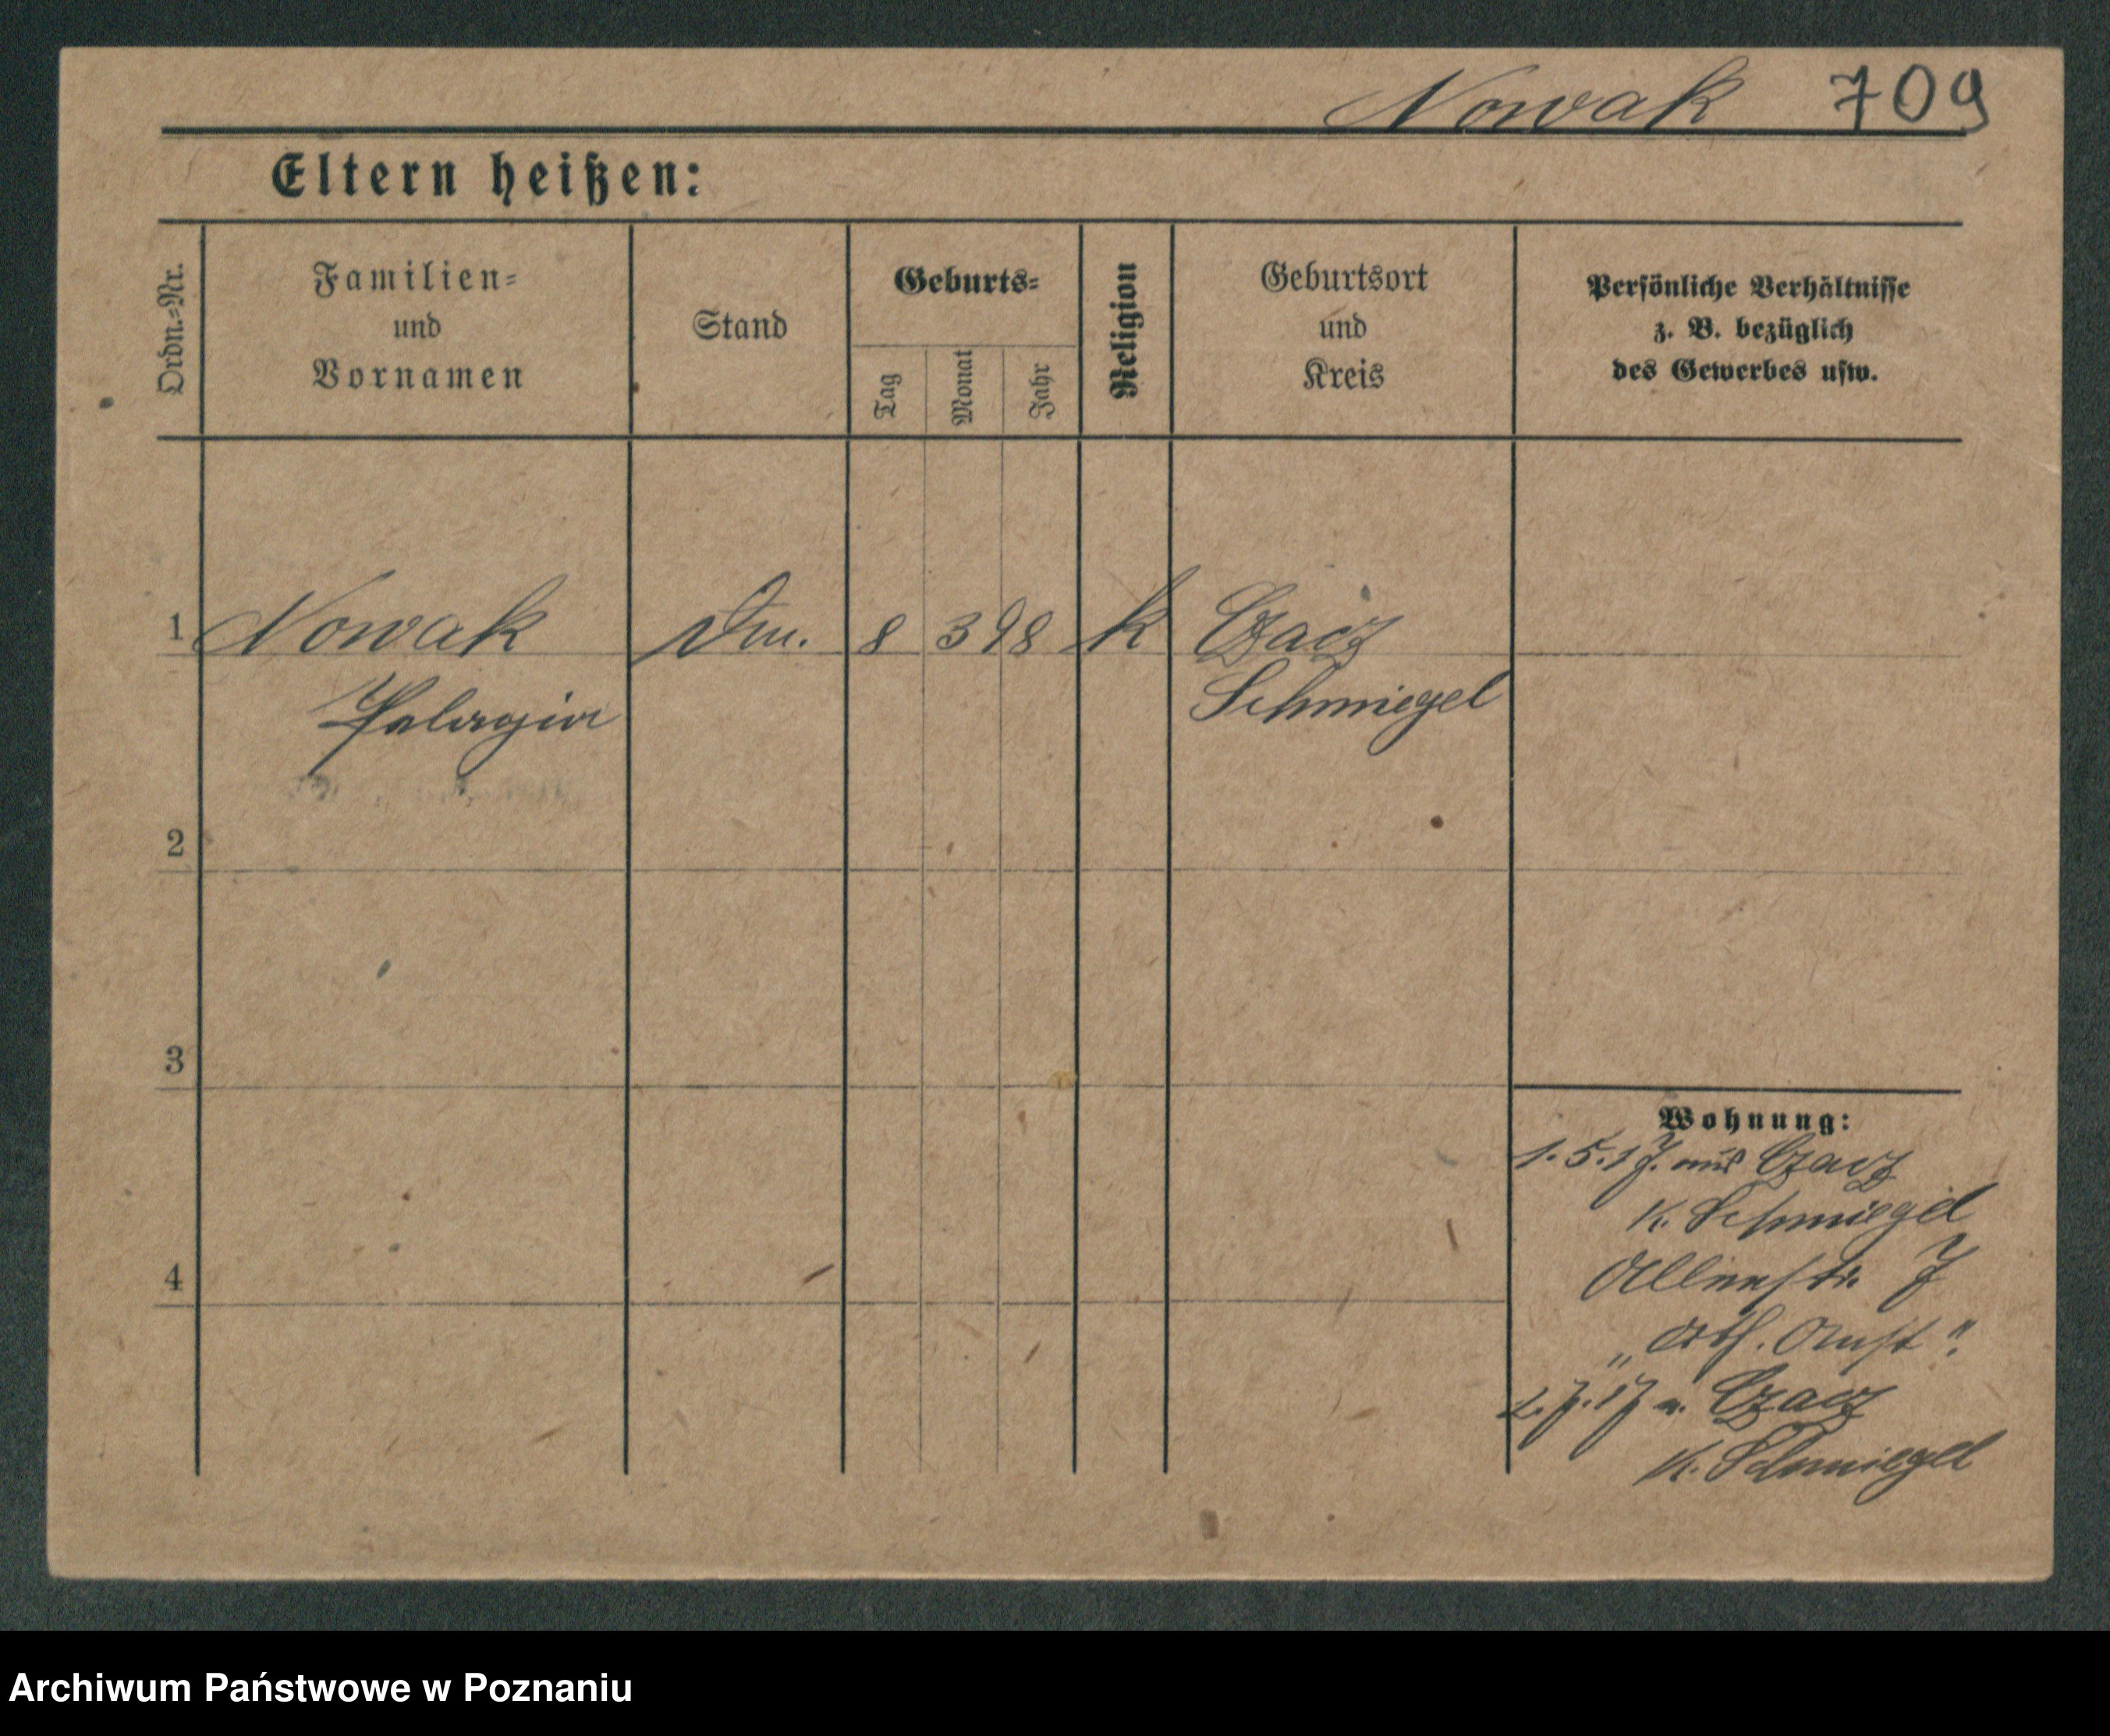 Nowak 709
Eltern heißen:
Ordn.-Nr.
Familien-
und
Vornamen
Stand
Geburts-
Tag
Monat
Jahr
Religion
Geburtsort
und
Kreis
Persönliche Verhältnisse
z. B. bezüglich
des Gewerbes usw.
1 Nowak 8 3 98 k Czacz
Pelagia Schmiegel
2
3
4
Wohnung:
1. 5. 17. aus Czacz
K. Schmiegel
7
2. 7. 17 n. Czacz
K. Schmiegel
Archiwum Państwowe w Poznaniu